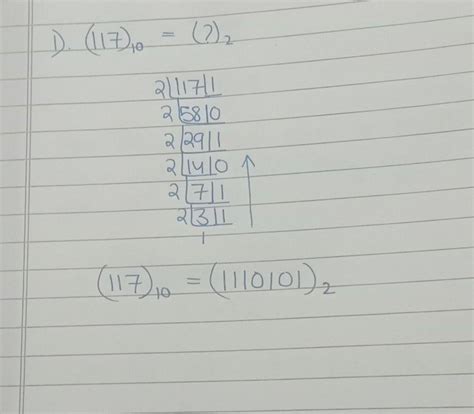 1). (117)₁₀ = (?)₂
2|117|1
2|58|0
2|29|1
2|14|0
2|7|1
2|3|1
1
(117)₁₀ = (1110101)₂